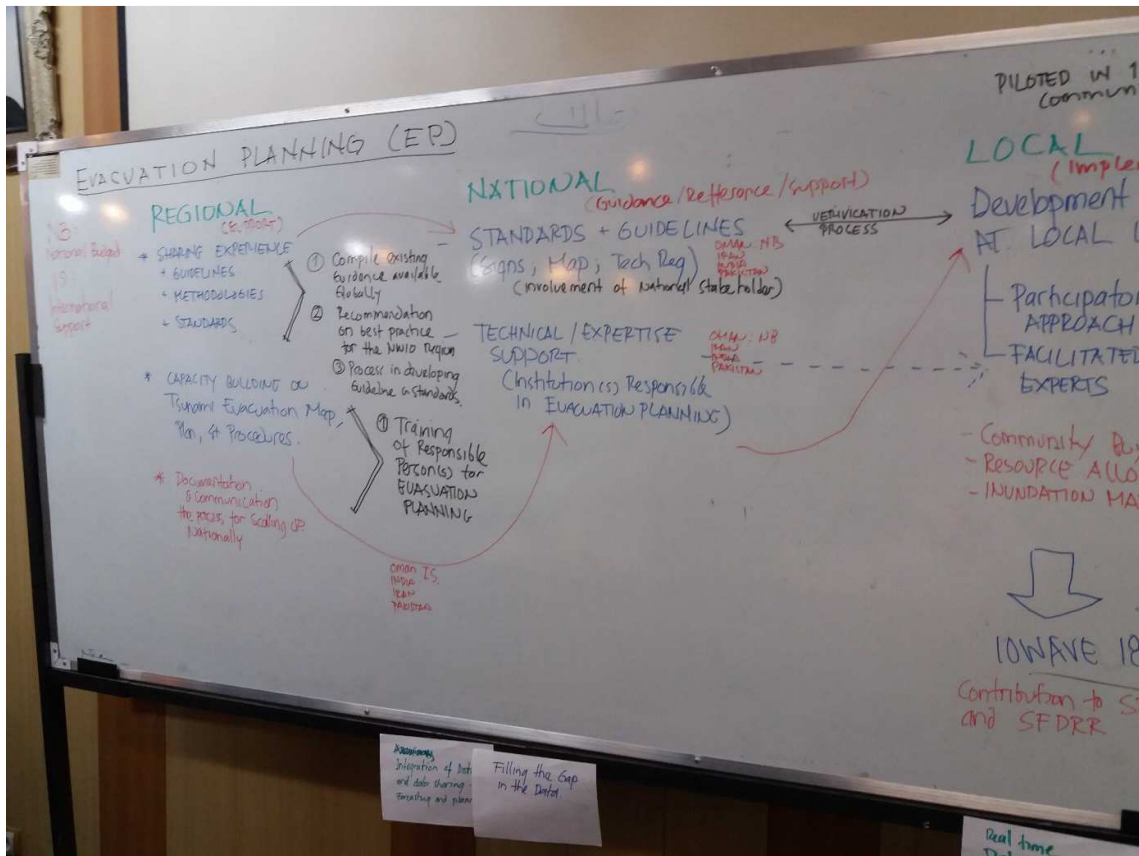 EVACUATION PLANNING (EP)
NB:
National Budget
IS:
International
Support
REGIONAL
* SHARING EXPERIENCE
+ GUIDELINES
+ METHODOLOGIES
+ STANDARDS
* CAPACITY BUILDING ON
Tsunami Evacuation Map,
Plan, & Procedures.
* Documentation
& Communication
the for Scalling UP
Nationally
① Compile existing
Guidance available
Globally
② Recommendation
on best practice
for the NWIO Region
③ Process in developing
Guideline & Standards.
① Training
of Responsible
Person(s) for
EVASUATION
PLANNING
OMAN IS.
INDIA
IRAN
PAKISTAN
NATIONAL
(Guidance/Refferance/Support)
STANDARDS + GUIDELINES
(Signs, Map; Tech Reg)
(involvement of National Stakeholder)
OMAN: NB
IRAN
INDIA
PAKISTAN
TECHNICAL/EXPERTISE
SUPPORT
(Institution(s) Responsible
IN EVACUATION PLANNING)
OMAN: NB
IRAN
INDIA
PAKISTAN
VERIVICATION
PROCESS
PILOTED IN 1
Commun
LOCAL
(Imple
Development
AT LOCAL L
Participator
APPROACH
FACILITATED
EXPERTS
- Community Bu
- RESOURCE ALLO
- INUNDATION MA
IOWAVE 18
Contribution to S
and SFDRR
Integration of Data
and data sharing
Filling the Gap
in the Data.
Real time